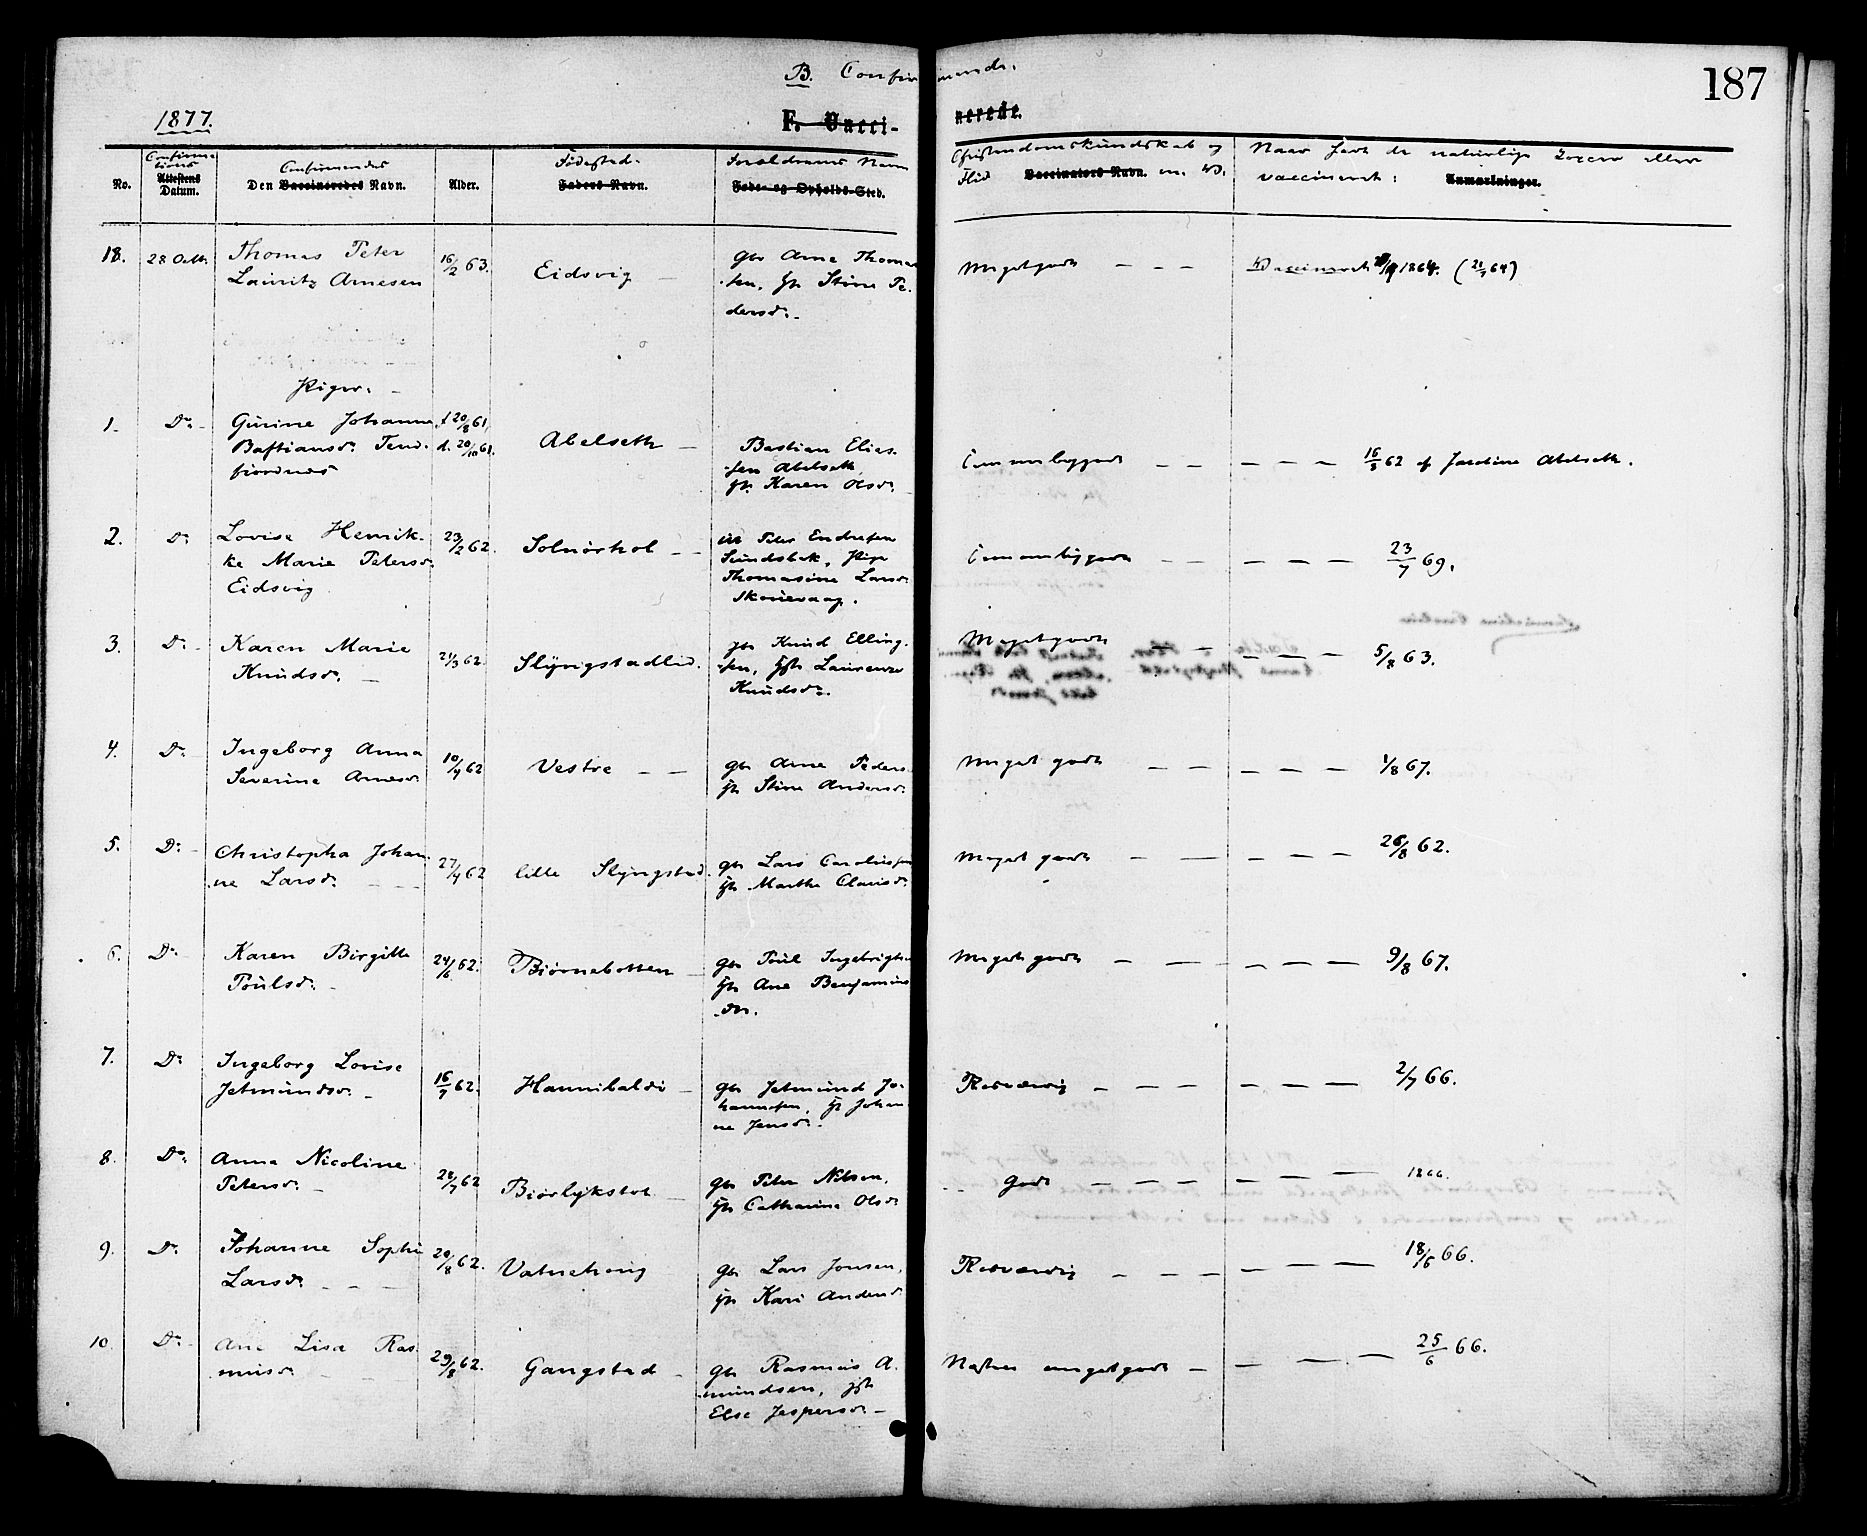 187
B. Confirmerede.
1877.
F. Vacci-nerede.
No.
Confirmations
Attestens Datum.
Confirmandes
Den Vaccineredes Navn.
Alder.
Fødested.
Faders Navn.
Forældrenes Navn
Føde- og Opholds-Sted.
Christendomskundskab og
Flid Vaccinators Navn. m. v.
Naar havt de naturlige Kopper eller
vaccineret: Anmærkninger.
18. 28 Octb. Thomas Peter
Lauritz Arnesen
16/2 63.
Eidsvig
Gbr Arne Thomas
sen, Hu Stine Pe-
dersd.
Megetgodt
Vaccineret 1864. (21/7 64)
Piger.
1. Do Gurine Johanne
Bastiansd. Tend-
fiordnes
f 20/8 61,
d. 20/10 61.
Abelseth
Bastian Elias-
sen Abelseth,
Hu Karen Olsd.
Temmeliggodt
16/8 62 af Jacobine Abelseth.
2. Do Lovise Henrik-
ke Marie Petersd.
Eidsvig
23/2 62.
Solnørhol
Peter Endresen
Sundsbak, Pige
Thomasine Larsd.
Skorevaag.
Temmeliggodt
23/7 69.
3. Do Karen Marie
Knudsd.
21/3 62.
Slyngstadlid.
Gbr Knud Elling-
sen, Hu Laurenze
Knudsd.
Megetgodt
5/8 63.
4. Do Ingeborg Anna
Severine Arnesd.
10/4 62
Vestre
Gbr Arne Peders.
Hu Stine Andersd.
Meget godt
1/8 67.
5. Do Christopha Johan-
ne Larsd.
27/4 62
lille Slyngstad.
Gbr Lars Carolius sen
Hu Marthe Clausd.
Meget godt
26/8 62.
6. Do Karen Birgitte
Poulsd.
24/6 62.
Biørnebotten
Gbr Poul Ingebrigts.
Hu Ane Benjamins
dr.
Meget godt
9/8 67.
7. Do Ingeborg Lovise
Jetmundsd.
16/7 62.
Hannibaldi
Gbr Jetmund Jo-
hannesen, Hu Johan-
ne Jensd.
Roesværdig
2/7 66.
8. Do Anna Nicoline
Petersd.
28/7 62
Biørlykstøl
Gbr Peter Nilsen,
Hu Catharina Olsd.
Godt
1866.
9. Do Johanne Sophie
Larsd.
20/8 62.
Vatnehoug
Gbr Lars Jonsen,
Hu Kari Andersd.
Roesværdig
18/6 66.
10. Do Ane Lisa Ras-
musd.
29/8 62.
Gangstad
Gbr Rasmus A-
mundsen, Hu
Else Jespersd.
Næsten megetgodt
25/6 66.